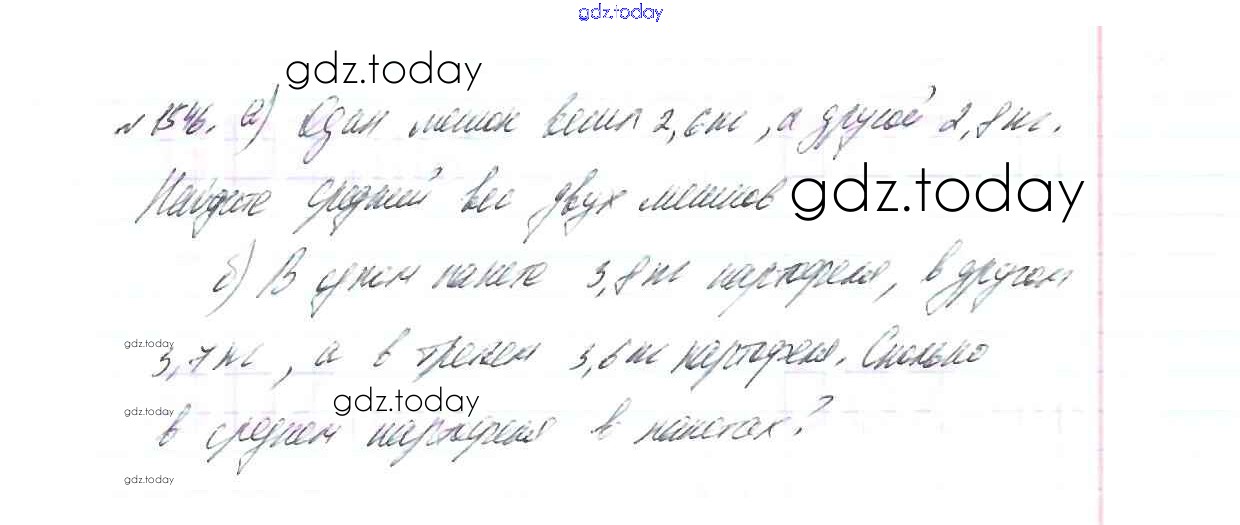 gdz.today
gdz.today
№ 1546. а) Один мешок весит 2,6 кг, а другой 2,8 кг.
Найдите средний вес двух мешков gdz.today
б) В одном пакете 3,8 кг картофеля, в другом
gdz.today
3,7 кг, а в третьем 3,6 кг картофеля. Сколько
gdz.today
gdz.today
в среднем картофеля в пакетах?
gdz.today